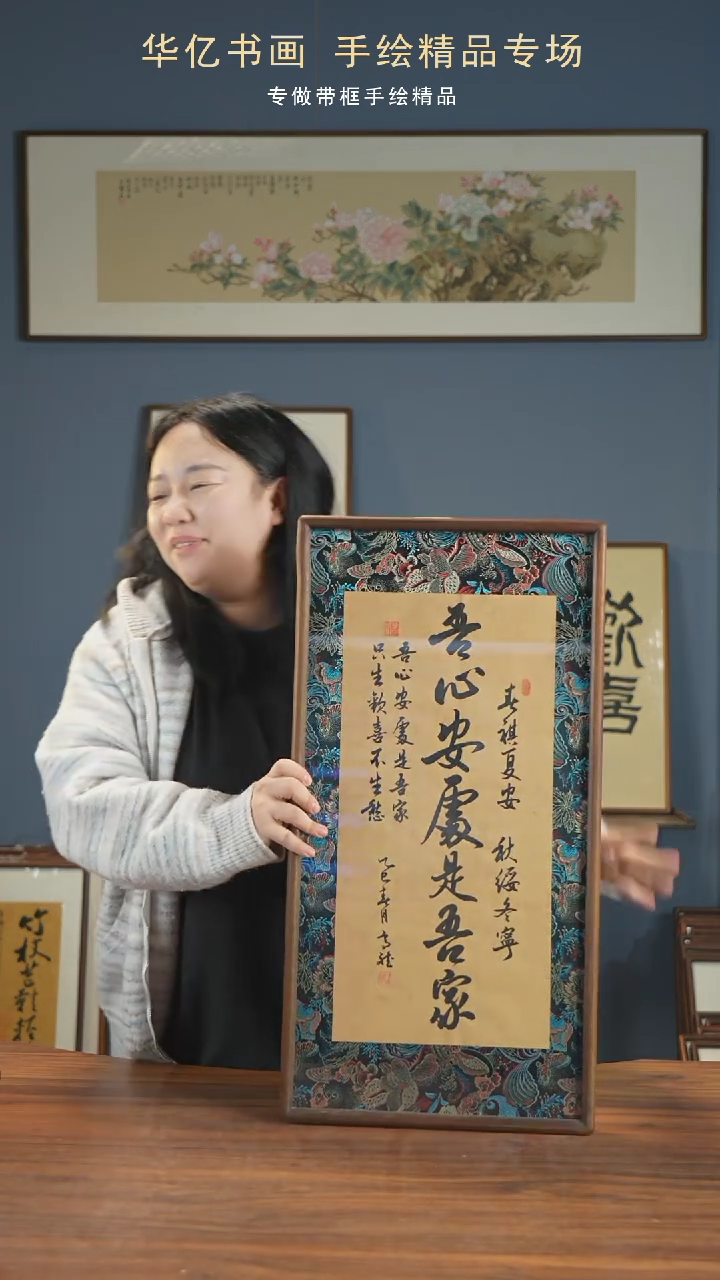 华亿书画 手绘精品专场
专做带框手绘精品
春祺夏安 秋绥冬寧
吾心安處是吾家
吾心安處是吾家
只生歡喜不生愁
乙巳春月
歡喜
竹枝芒鞋輕